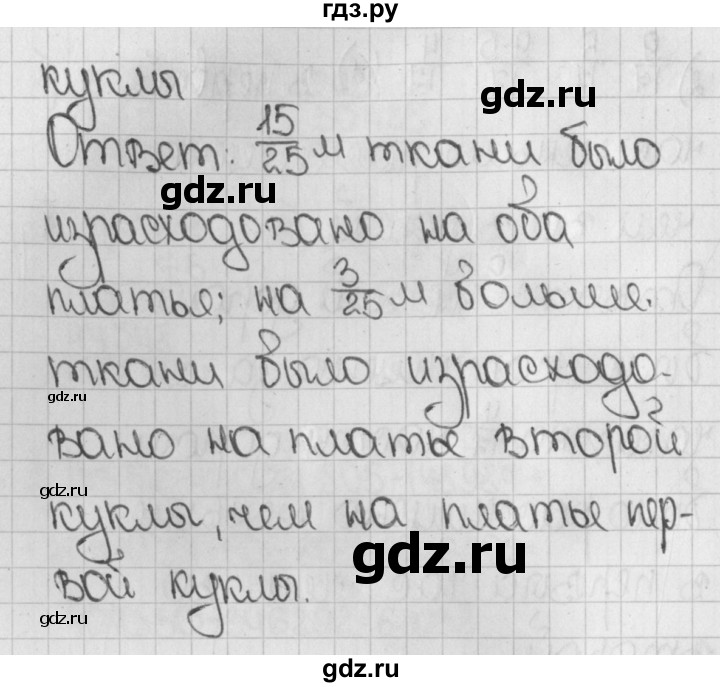 гдз.ру
куклы
gdz.ru
Ответ: 15/25 м ткани было
gdz.ru
израсходовано на оба
платья; на 3/25 м больше.
ткани было израсходо-
gdz.ru
вано на платье второй
gdz.ru
куклы, чем на платье пер-
gdz.ru
вой куклы.
gdz.ru
gdz.ru